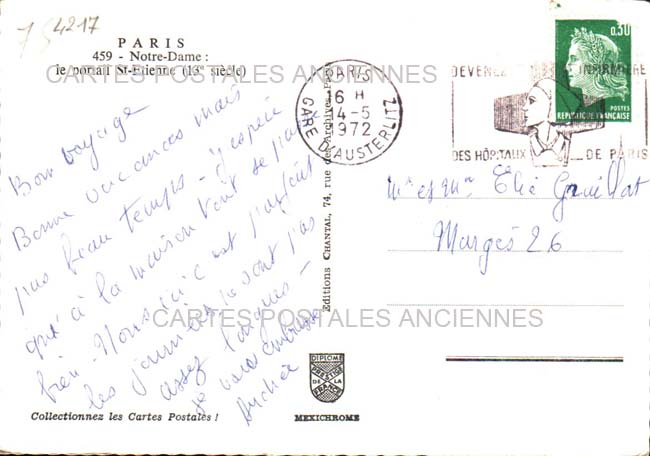 754217
PARIS
459 - Notre-Dame :
le portail St-Etienne (13e siècle)
Bon voyage
Bonne vacances mais
pas beau temps - j'espère
qu'à la maison tout se passe
bien - Nous ici c'est parfait
les journées ne sont pas
assez longues -
je vous embrasse
Collectionnez les Cartes Postales !
Editions CHANTAL, 74, rue des Archives, Paris
DIPLOME
PRESTIGE
DE LA
FRANCE
MEXICHROME
PARIS
16 H
4-5
1972
GARE D'AUSTERLITZ
DEVENEZ INFIRMIERE
DES HÔPITAUX DE PARIS
0,30
POSTES
REPUBLIQUE FRANÇAISE
Mr et Mme Elie
Margès 26
CARTES POSTALES ANCIENNES
CARTES POSTALES ANCIENNES